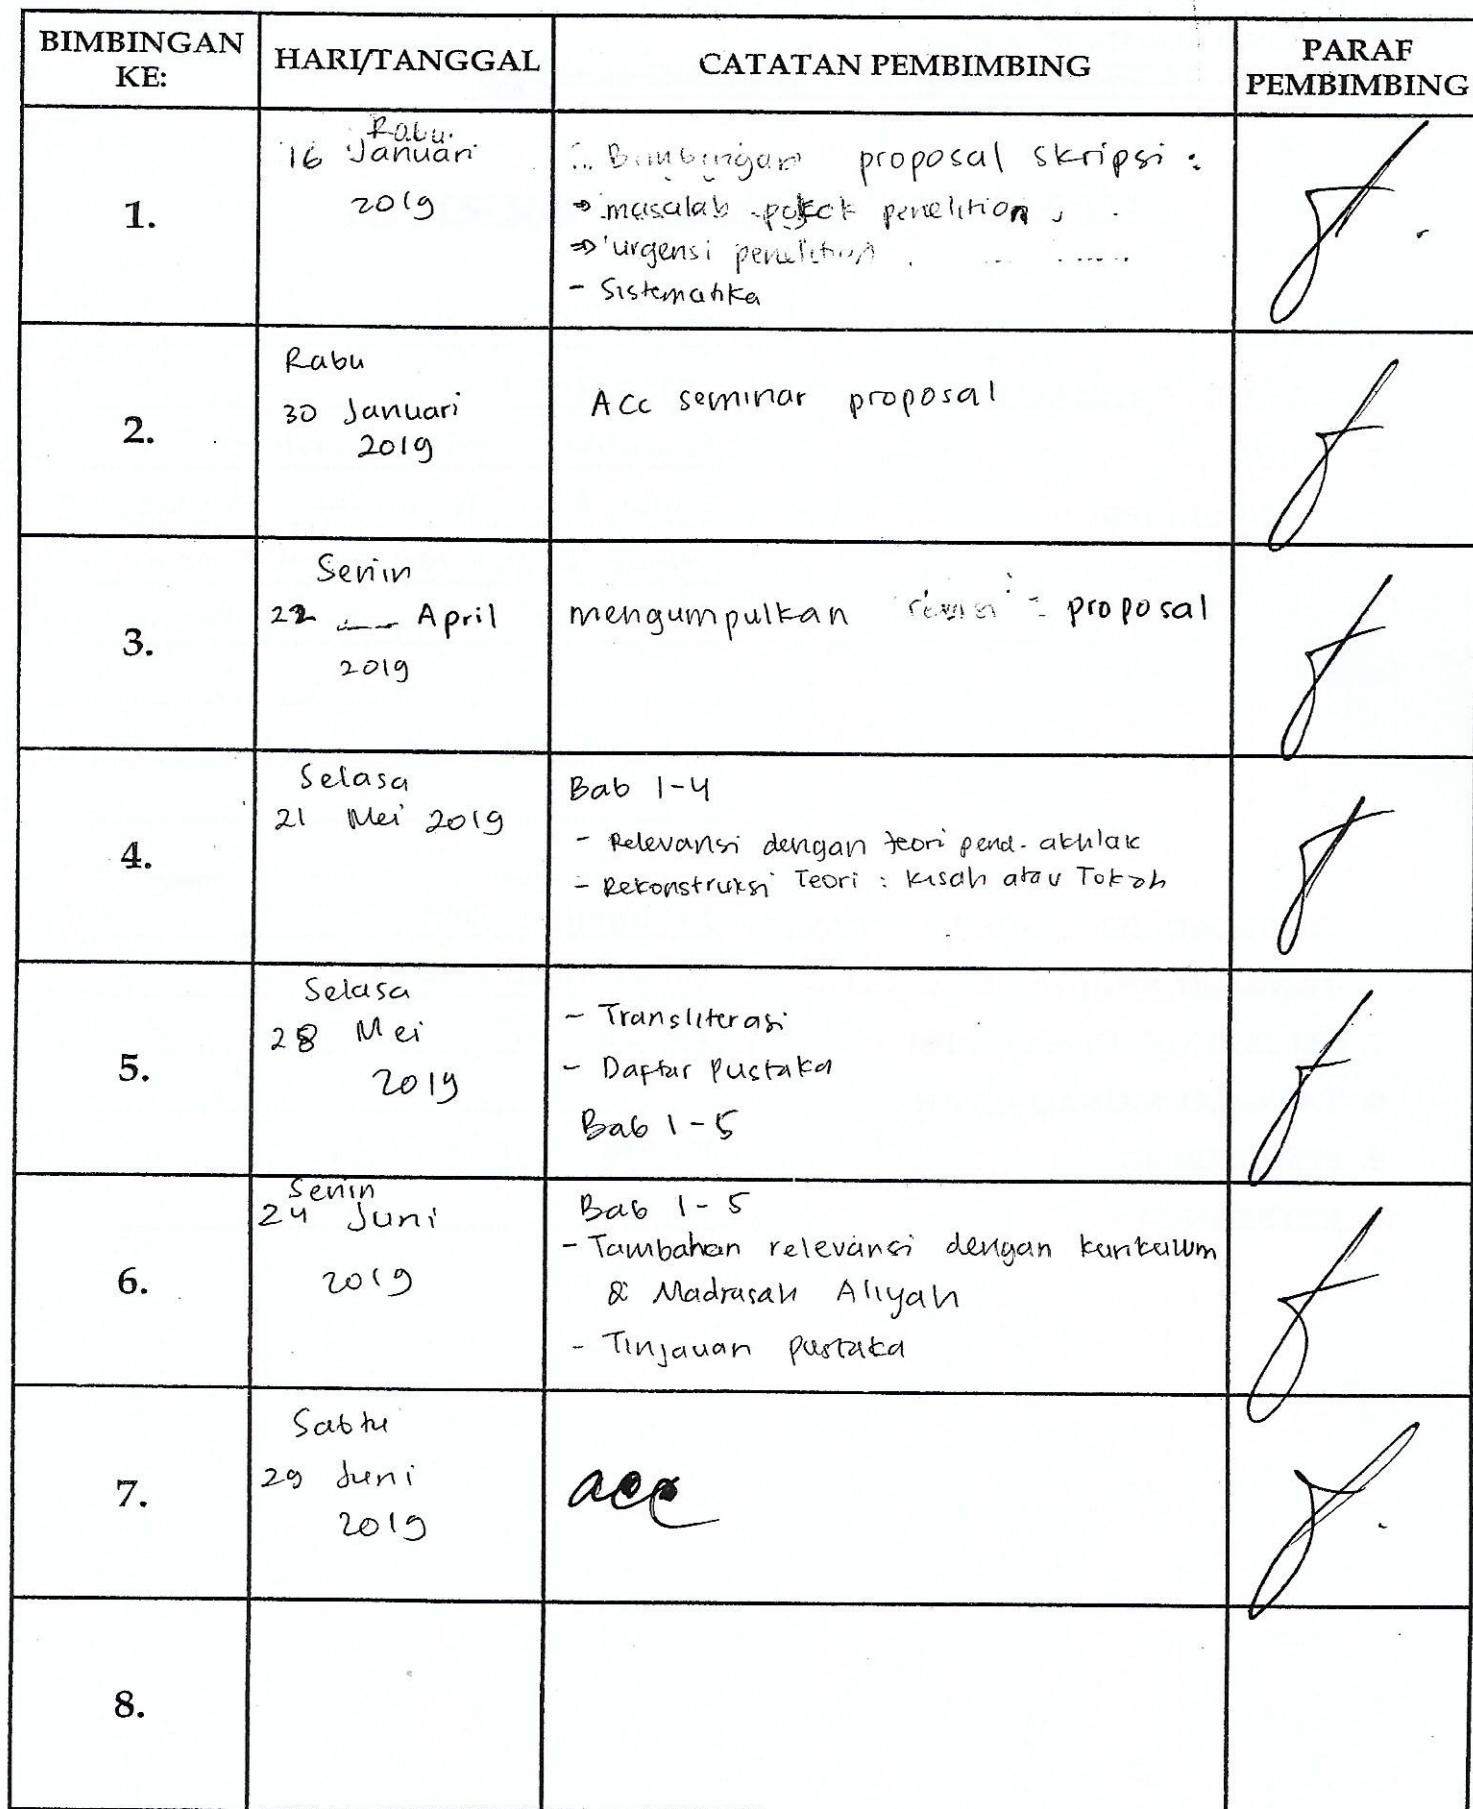 BIMBINGAN KE:
HARI/TANGGAL
CATATAN PEMBIMBING
PARAF PEMBIMBING
1.
Rabu.
16 Januari
2019
Bimbingan proposal skripsi :
⇒ masalah pokok penelitian
⇒ urgensi penelitian
- Sistematika
2.
Rabu
30 Januari
2019
Acc seminar proposal
3.
Senin
22 April
2019
mengumpulkan revisi proposal
4.
Selasa
21 Mei 2019
Bab 1-4
- Relevansi dengan teori pend. akhlak
- Rekonstruksi Teori : kisah atau Tokoh
5.
Selasa
28 Mei
2019
- Transliterasi
- Daftar Pustaka
Bab 1-5
6.
Senin
24 Juni
2019
Bab 1-5
- Tambahan relevansi dengan kurikulum
& Madrasah Aliyah
- Tinjauan pustaka
7.
Sabtu
29 Juni
2019
acc
8.